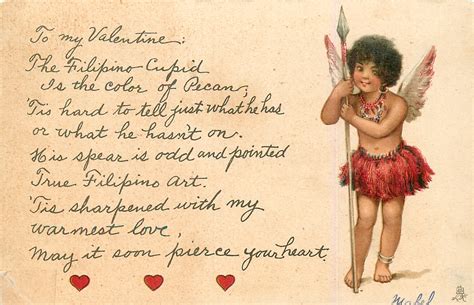 To my Valentine:
The Filipino Cupid
Is the color of Pecan,
'Tis hard to tell just what he has
or what he hasn't on.
His spear is odd and pointed
True Filipino Art.
'Tis sharpened with my
warmest love,
May it soon pierce your heart.
Mabel